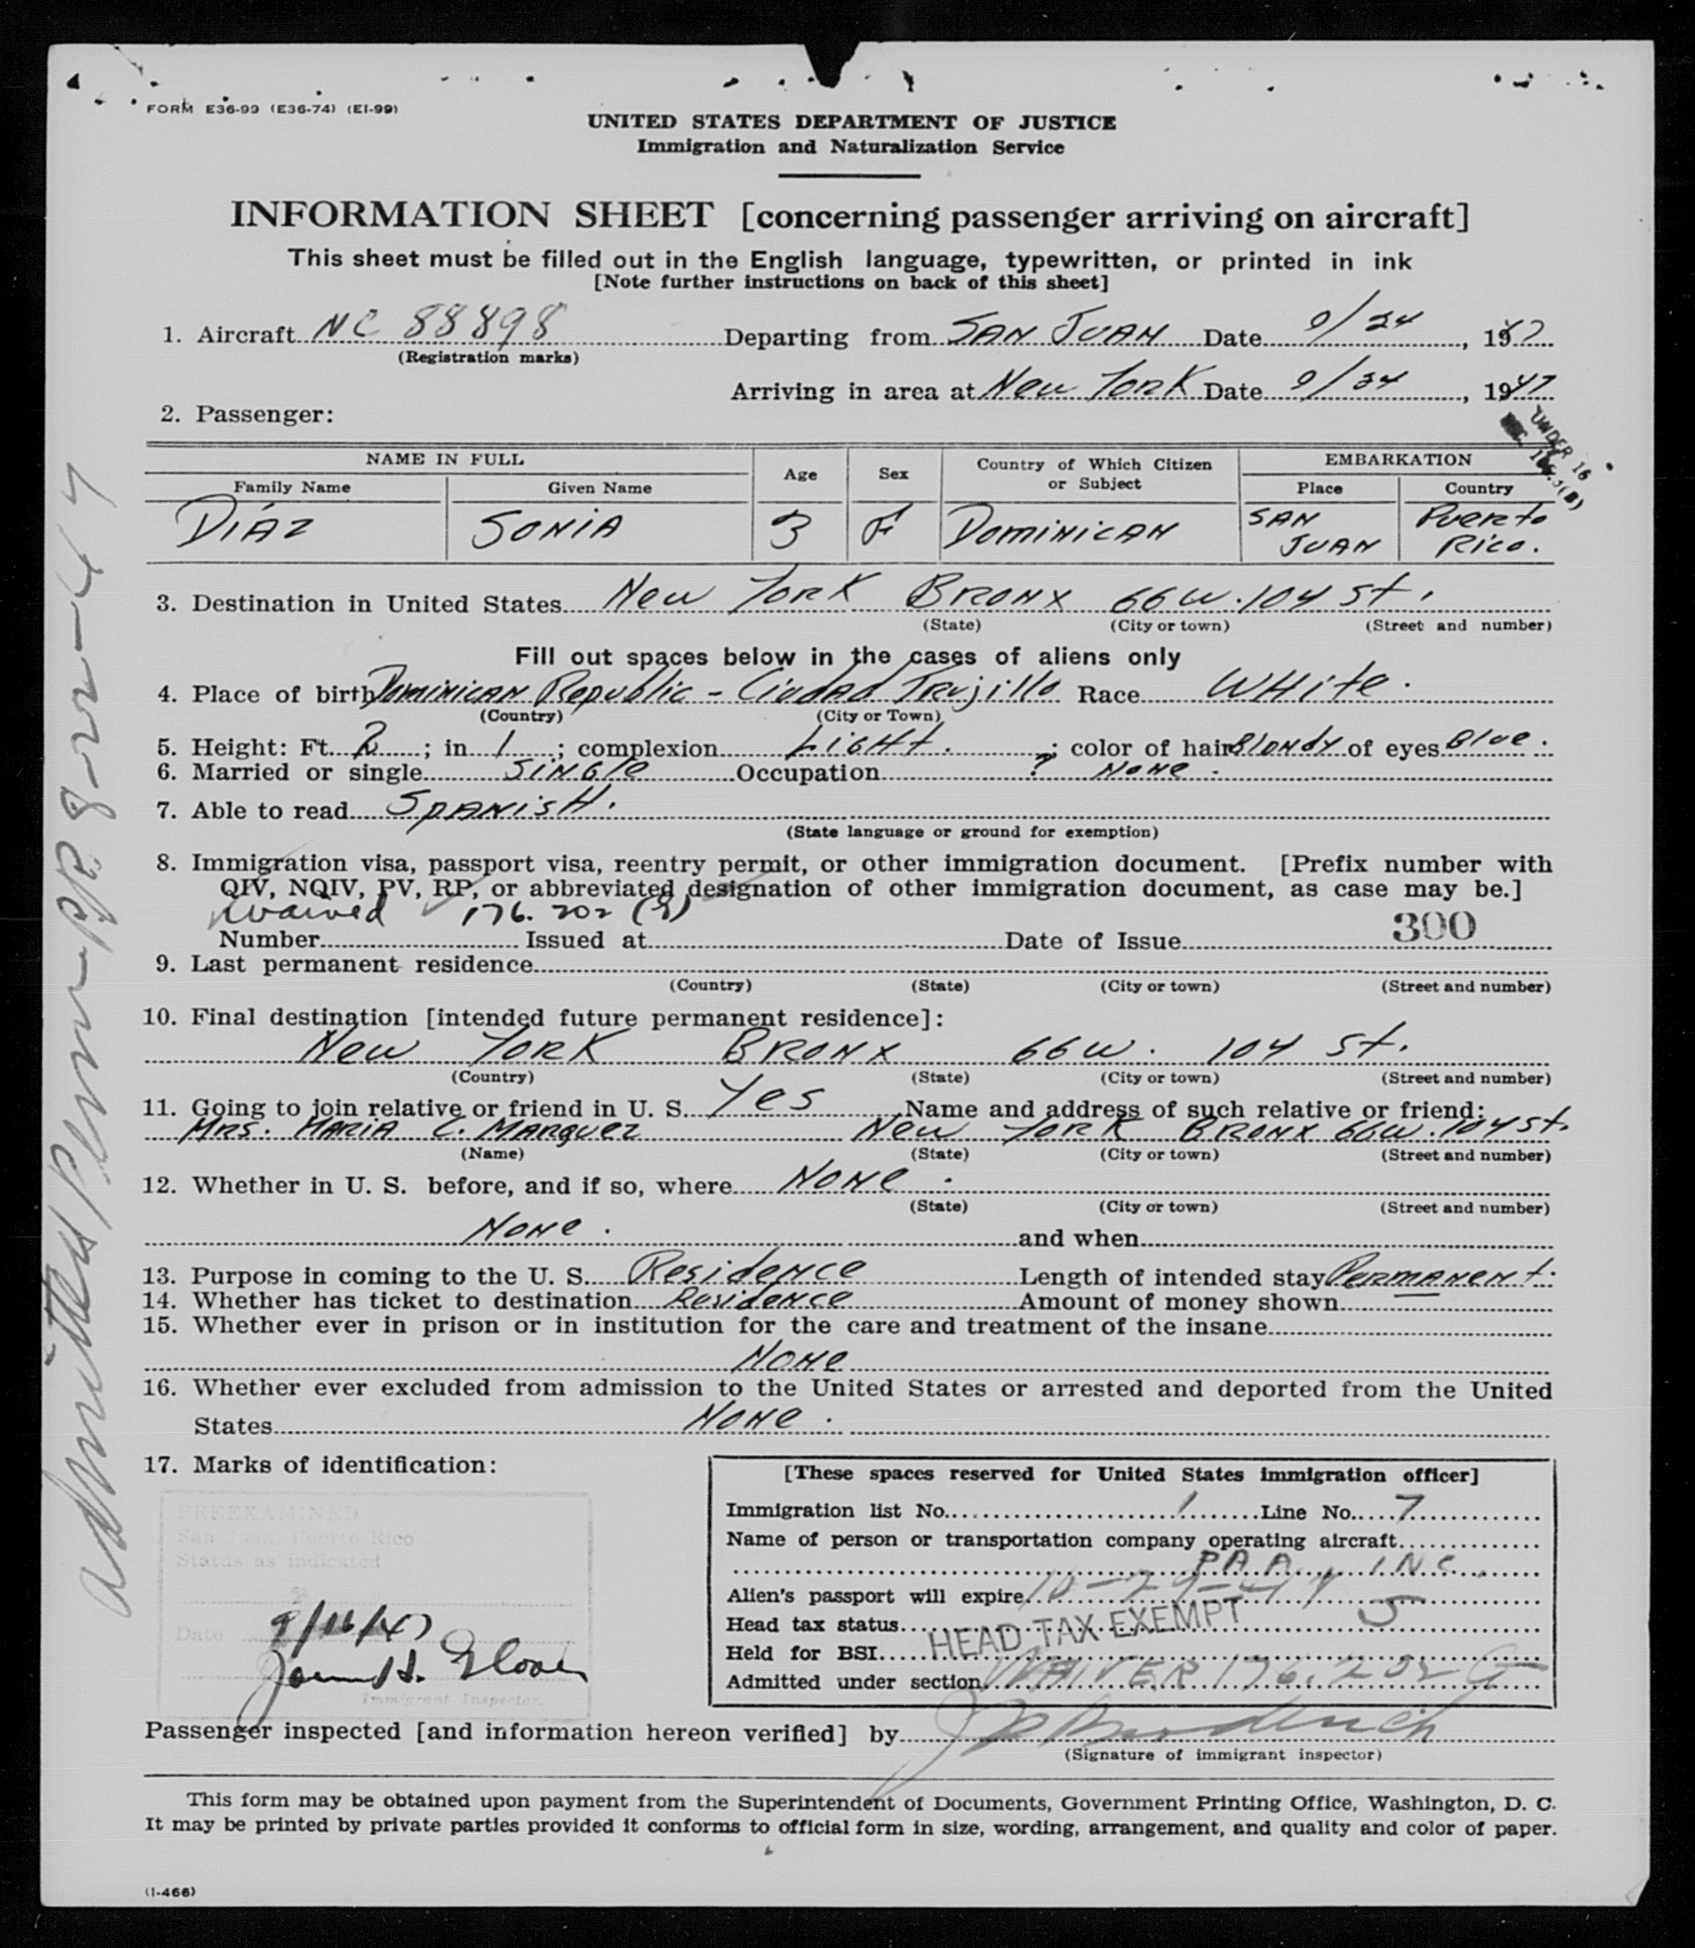 FORM E36-99 (E36-74) (EI-99)
UNITED STATES DEPARTMENT OF JUSTICE
Immigration and Naturalization Service
INFORMATION SHEET [concerning passenger arriving on aircraft]
This sheet must be filled out in the English language, typewritten, or printed in ink
[Note further instructions on back of this sheet]
1. Aircraft NC 88898 Departing from SAN JUAN Date 9/24, 1947
(Registration marks)
Arriving in area at New York Date 9/24, 1947
2. Passenger:
UNDER 16
NAME IN FULL Age Sex Country of Which Citizen or Subject EMBARKATION
Family Name Given Name Place Country
DIÁZ SONIA 3 F DOMINICAN SAN JUAN Puerto Rico.
3. Destination in United States New York BRONX 66W. 104 St.
(State) (City or town) (Street and number)
Fill out spaces below in the cases of aliens only
4. Place of birth Dominican Republic - Ciudad Trujillo Race White.
(Country) (City or Town)
5. Height: Ft. 2; in 1; complexion Light.; color of hair Blondy of eyes Blue.
6. Married or single Single Occupation ? None.
7. Able to read Spanish.
(State language or ground for exemption)
8. Immigration visa, passport visa, reentry permit, or other immigration document. [Prefix number with
QIV, NQIV, PV, RP, or abbreviated designation of other immigration document, as case may be.]
Waived 176.202 (g)
Number Issued at Date of Issue 300
9. Last permanent residence
(Country) (State) (City or town) (Street and number)
10. Final destination [intended future permanent residence]:
New York BRONX 66W. 104 St.
(Country) (State) (City or town) (Street and number)
11. Going to join relative or friend in U. S. Yes Name and address of such relative or friend:
Mrs. Maria C. Marquez New York BRONX 66W. 104 St.
(Name) (State) (City or town) (Street and number)
12. Whether in U. S. before, and if so, where None.
(State) (City or town) (Street and number)
None. and when
13. Purpose in coming to the U. S. Residence Length of intended stay Permanent.
14. Whether has ticket to destination Residence Amount of money shown
15. Whether ever in prison or in institution for the care and treatment of the insane
None
16. Whether ever excluded from admission to the United States or arrested and deported from the United
States None.
17. Marks of identification:
PREEXAMINED
San Juan, Puerto Rico
Status as indicated
Date 9/16/47
Immigrant Inspector.
[These spaces reserved for United States immigration officer]
Immigration list No. 1 Line No. 7
Name of person or transportation company operating aircraft
PAA. INC.
Alien's passport will expire 10-29-47
Head tax status HEAD TAX EXEMPT 5
Held for BSI
Admitted under section WAIVER 176.202 G
Passenger inspected [and information hereon verified] by
(Signature of immigrant inspector)
This form may be obtained upon payment from the Superintendent of Documents, Government Printing Office, Washington, D. C.
It may be printed by private parties provided it conforms to official form in size, wording, arrangement, and quality and color of paper.
(I-466)
Admitted Perm